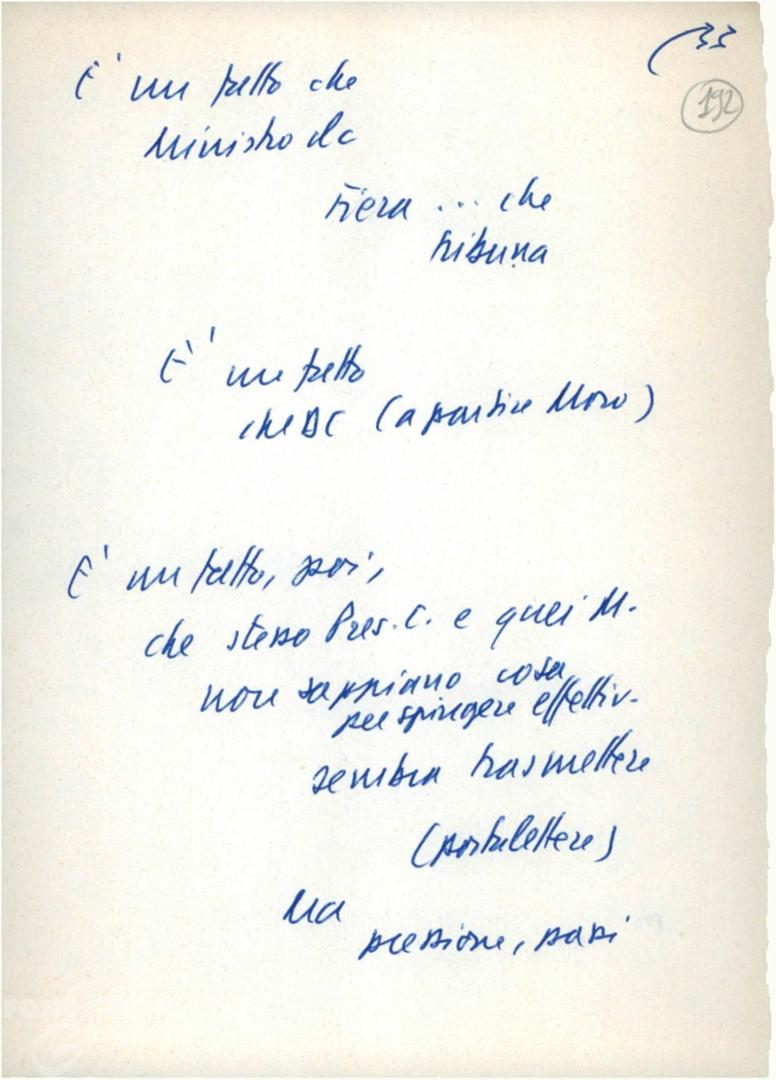 33
192
E' un fatto che
Ministro dc
Fiera ... che
tribuna
E' un fatto
che DC (a partire Moro)
E' un fatto, poi,
che stesso Pres. C. e quei M.
non sappiano cosa
per spingere effettiv.
sembra trasmettere
(portalettere)
Ma
pressione, passi